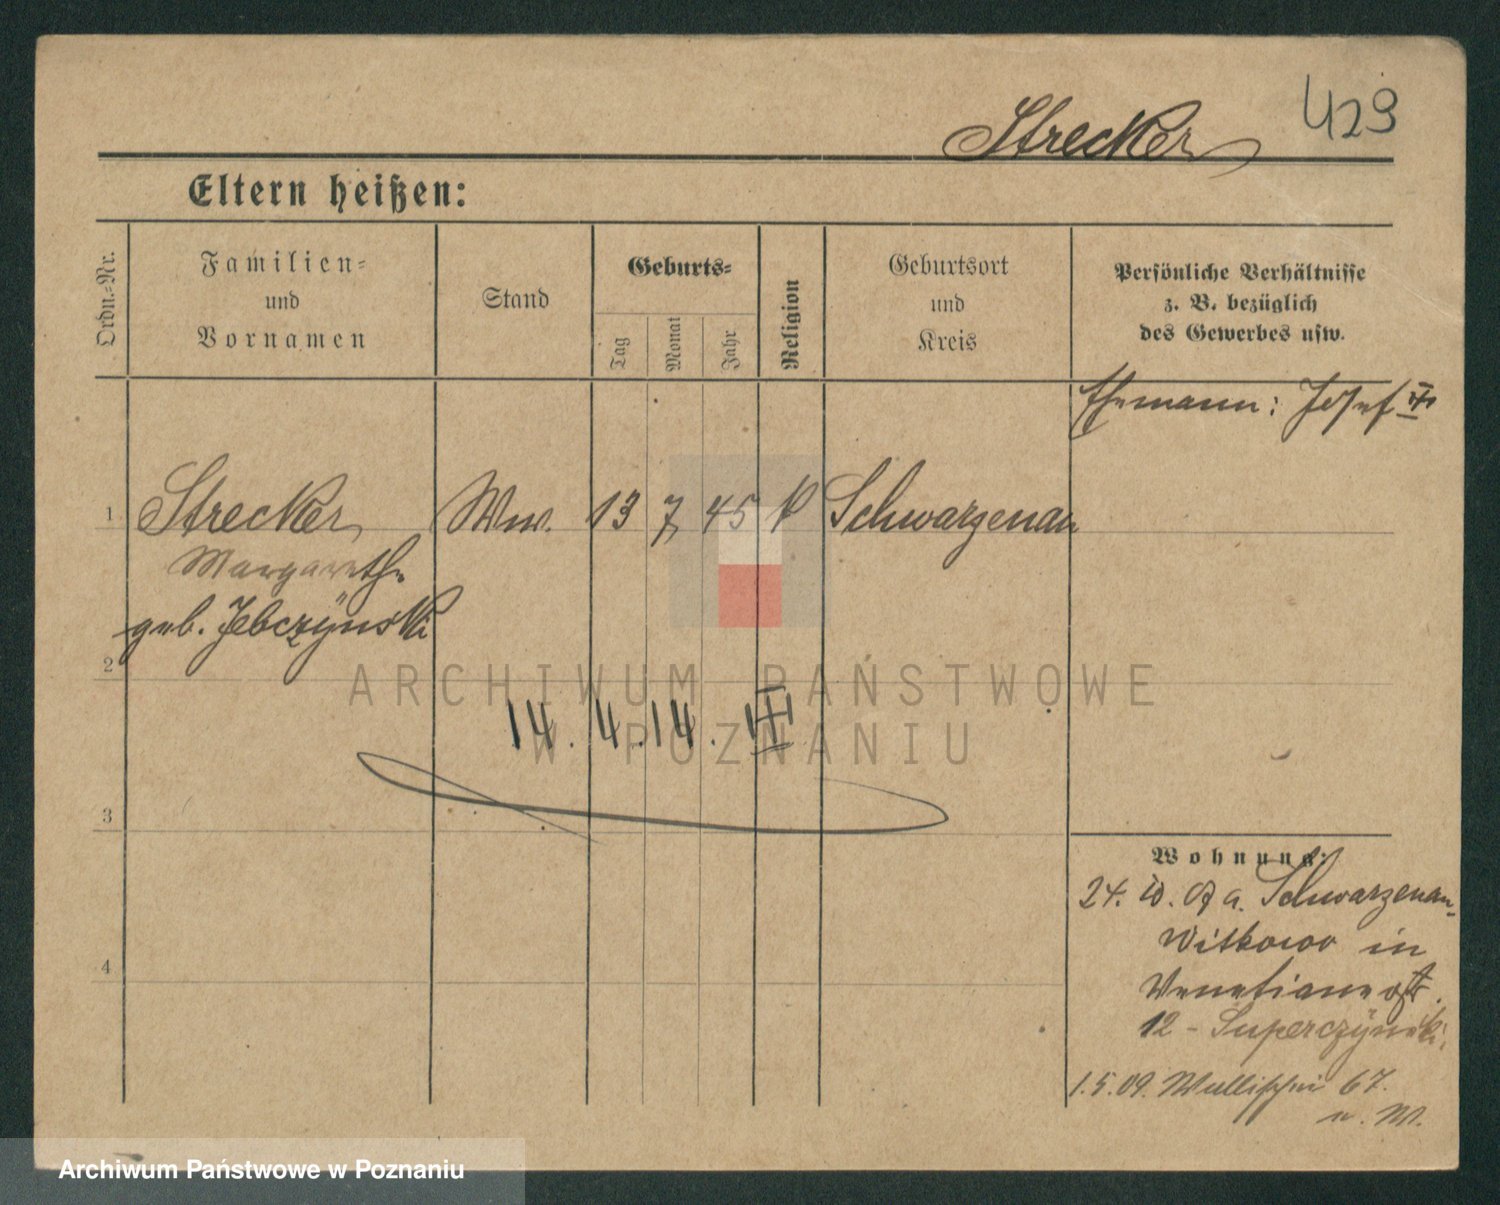 429
Strecker
Eltern heißen:
Ordn.-Nr.
Familien-
und
Vornamen
Stand
Geburts-
Tag
Monat
Jahr
Religion
Geburtsort
und
Kreis
Persönliche Verhältnisse
z. B. bezüglich
des Gewerbes usw.
Ehemann: Josef
1 Strecker Ww. 13 7 45 K Schwarzenau
Margarethe
geb. Jebczÿnski
2
14. 4. 14.
3
4
Wohnung:
24. a. Schwarzenau-
Witkowo in
Venetianerstr.
12 - Superczÿnski.
1.5.09. Wallischei 67.
ARCHIWUM PAŃSTWOWE
W POZNANIU
Archiwum Państwowe w Poznaniu